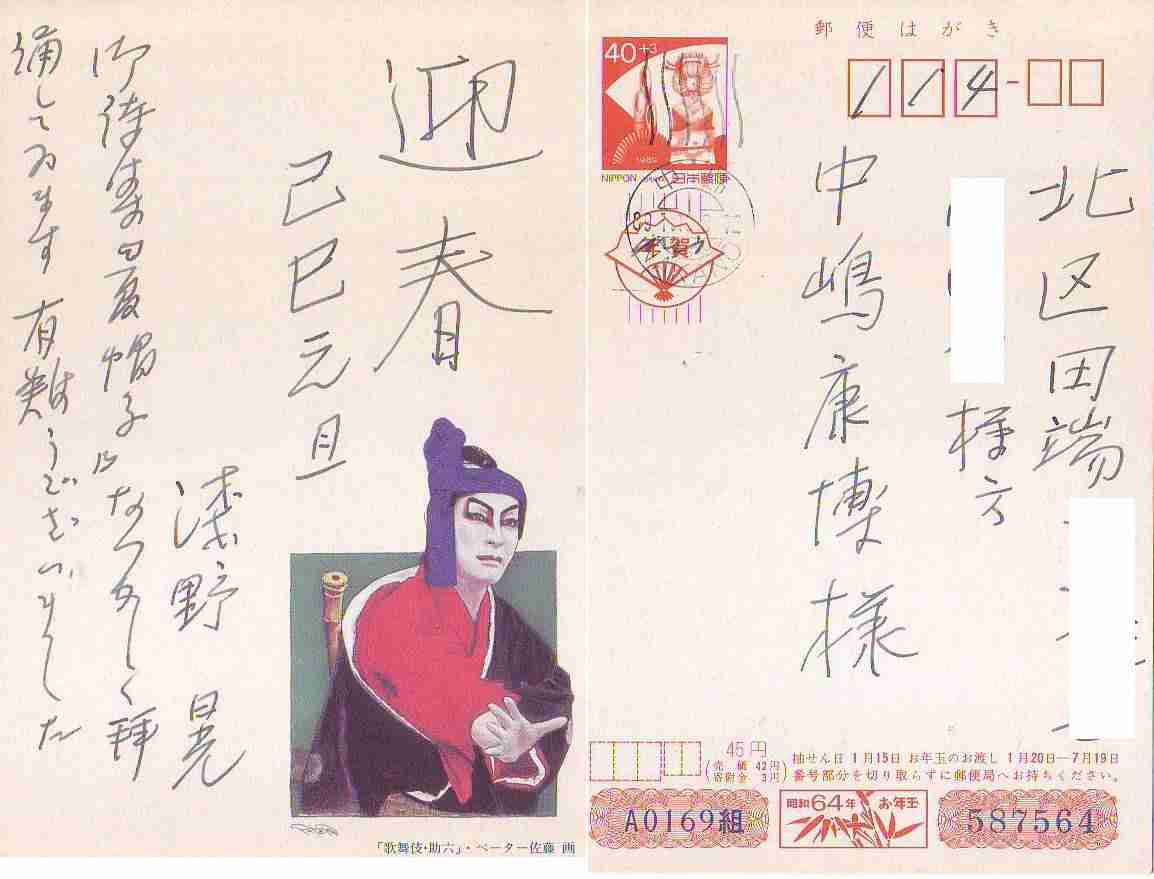 迎春
己巳元旦
浅野 晃
夏帽子はなつかしく拝
誦してゐます 有難うございました
「歌舞伎・助六」・ペーター佐藤 画
郵便はがき
40+3
1989
NIPPON
日本郵便
年賀
114-
北区田端
様方
中嶋康博様
45円
(売価42円
寄附金 3円)
抽せん日 1月15日 お年玉のお渡し 1月20日―7月19日
番号部分を切り取らずに郵便局へお持ちください。
A0169組
昭和64年 お年玉
587564